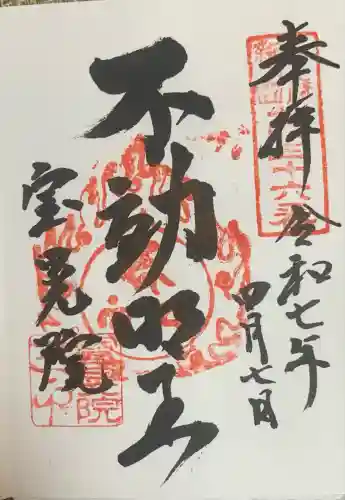 奉拝
令和七年
四月七日
不動明王
宝晃院